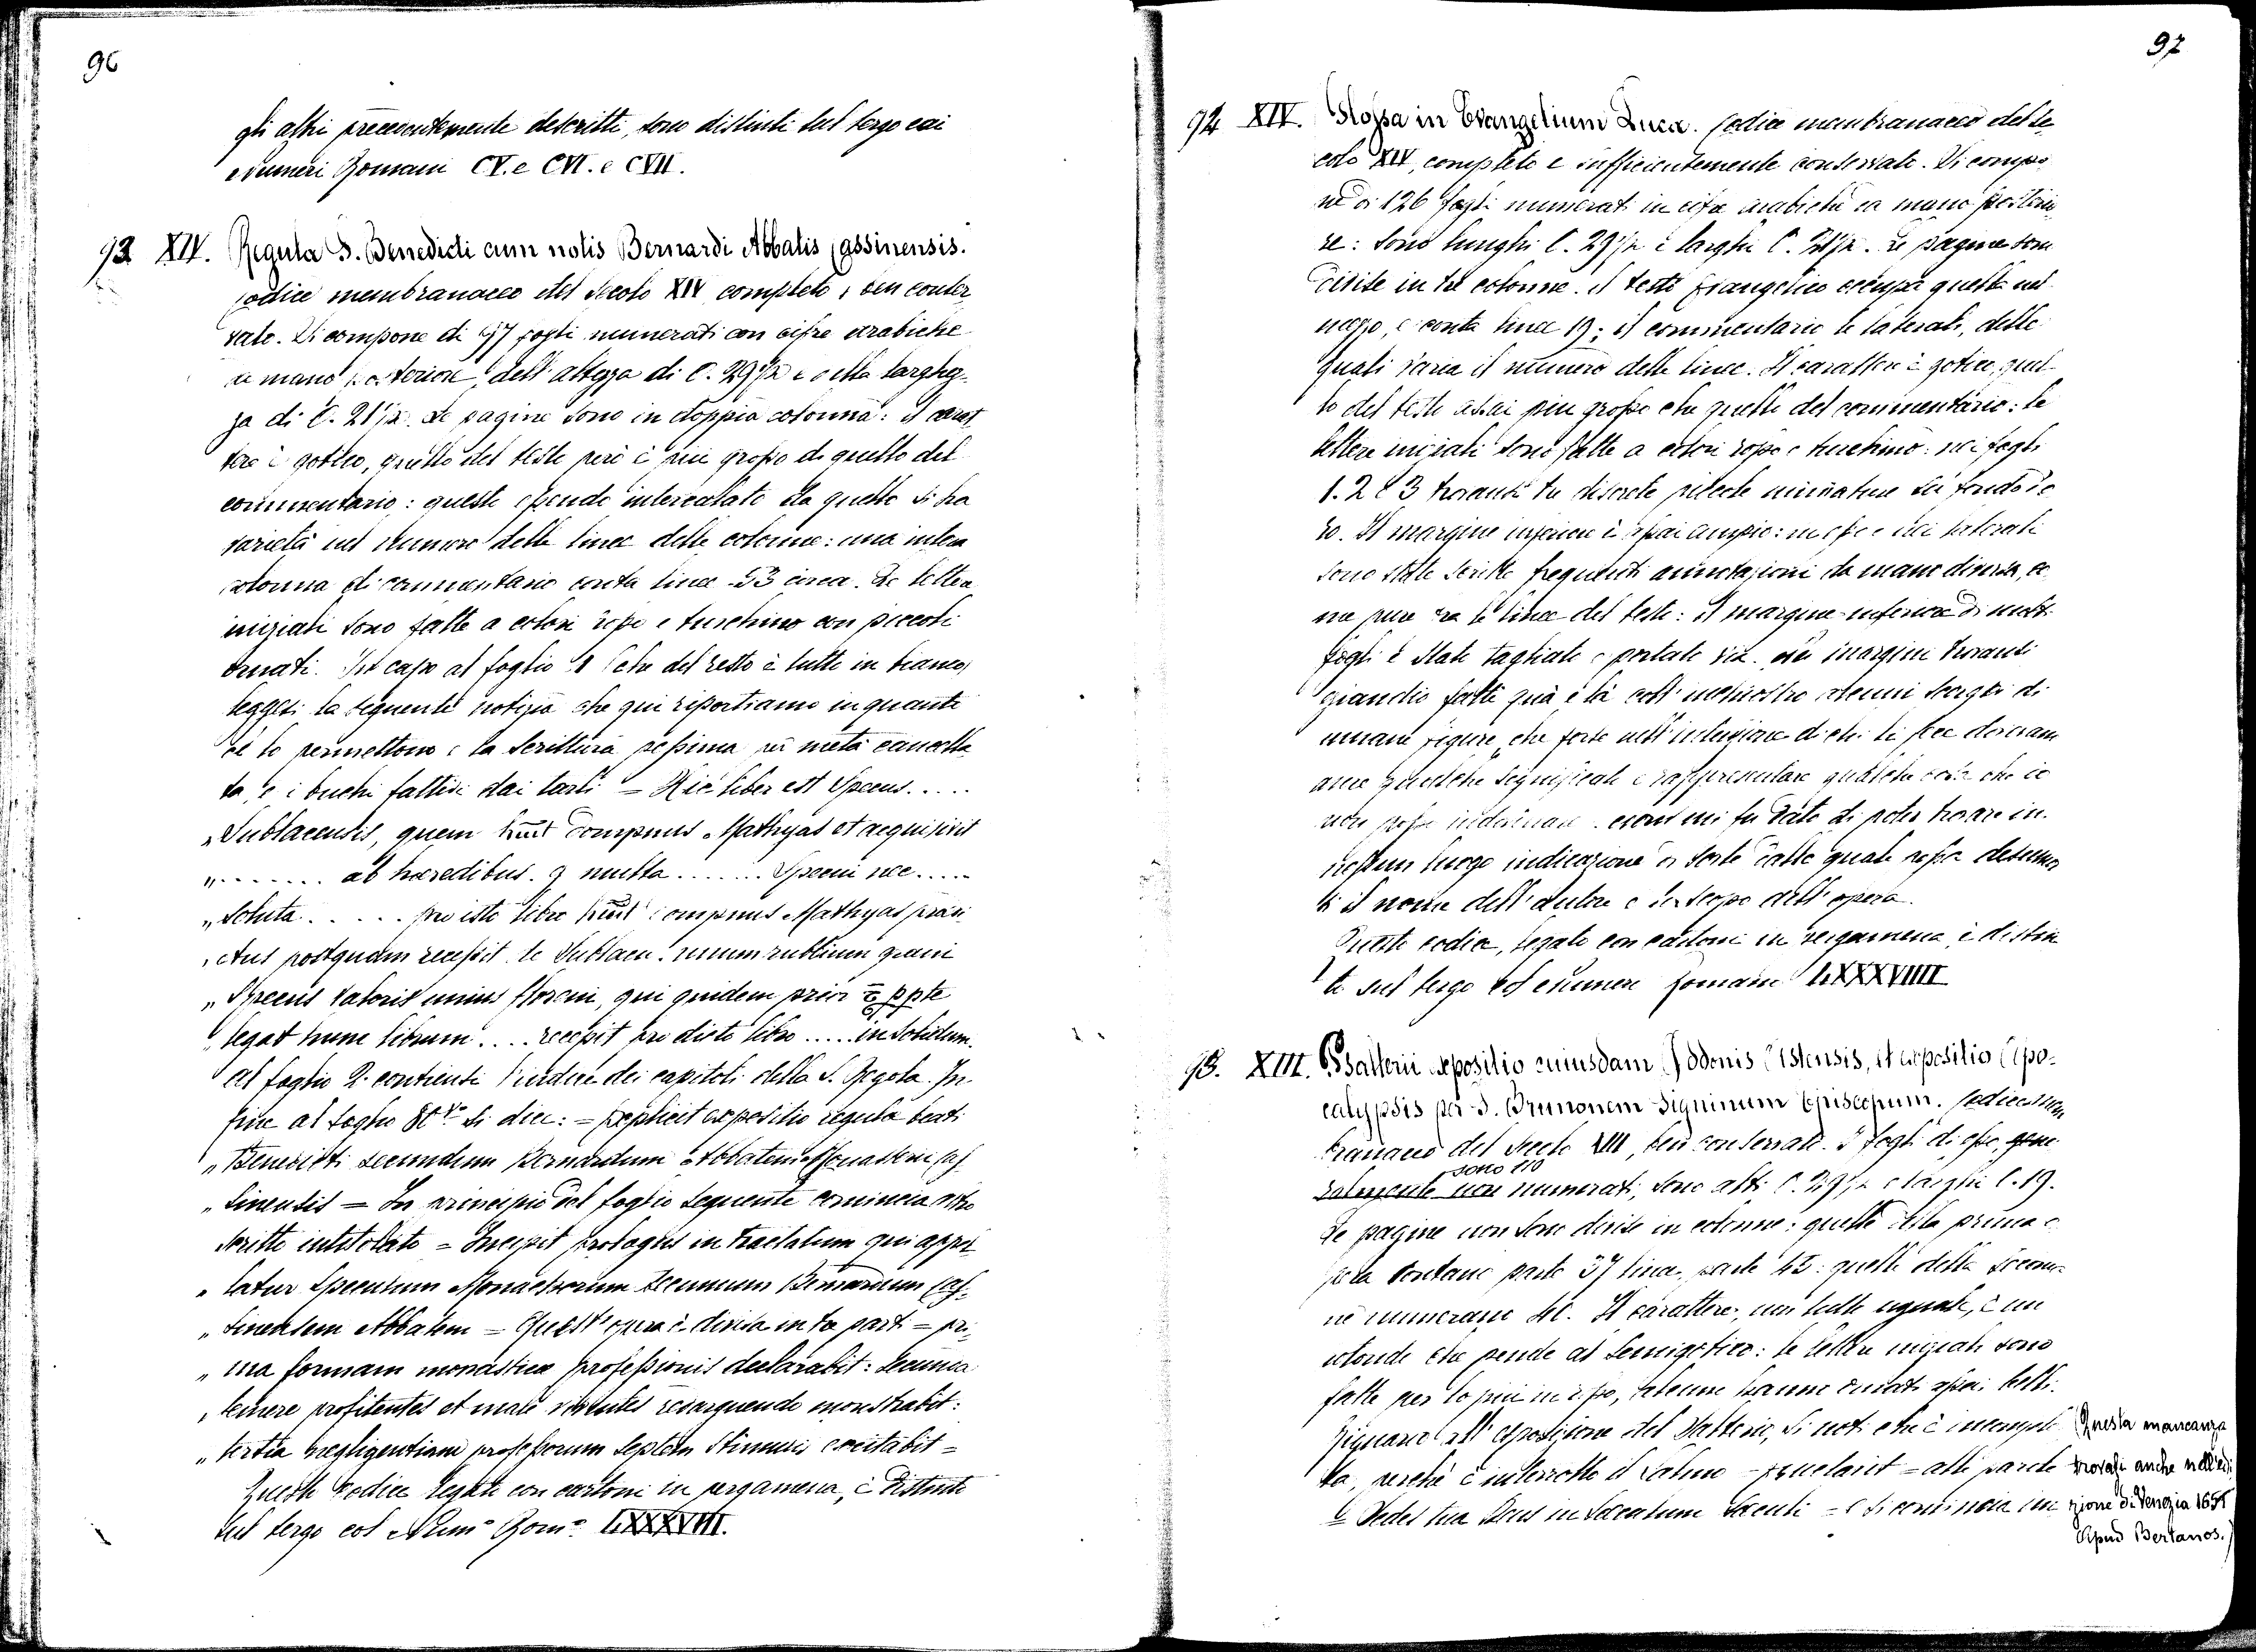 96
gli altri precedentemente descritti, sono distinti sul tergo coi
numeri Romani CV. e CVI. e CVII.
93 XIV. Regula S. Benedicti cum notis Bernardi Abbatis Cassinensis.
Codice membranaceo del secolo XIV completo e ben conser
vato. Si compone di fogli numerati con cifre arabiche
a mano posteriore, dell'altezza di C. 29 1/2 e della larghez-
za di C. 21 1/2. Le pagine sono in doppia colonna: il carat
tere è gotico, quello del testo però è più grosso di quello del
commentario: questo essendo intercalato da quello si ha
varietà nel numero delle linee delle colonne: una intera
colonna di commentario conta linee 53 circa. Le lettere
iniziali sono fatte a colori rosso e turchino con piccoli
ornati. In capo al foglio 1 (che del resto è tutto in bianco)
leggesi la seguente notizia che qui riportiamo in quanto
ce lo permettono e la scrittura pessima per metà cancella
ta, e i buchi fattivi dai tarli = Hic liber est Specus.....
„ Sublacensis, quem Dompnus Mathyas et acquisivit
„ ....... ab hæredibus. q multa ....... Specui nec.....
„ soluta ..... pro isto libro Dompnus Mathyas præfa
„ ctus postquam recessit de Sublacu. unum rublium grani
„ Specus valoris unius floreni, qui quidem prior ppte
„ legat hunc librum.... recepit pro dicto libro ..... in solidum.
Al foglio 2. contiensi l'indice dei capitoli della S. Regola. In
fine al foglio 80 vo si dice: = Explicit expositio regulæ beati
„ Benedicti secundum Bernardum Abbatem Monasterii Cas
„ sinensis = In principio del foglio seguente comincia altro
scritto intitolato = Incipit prologus in tractatum qui appel
„ latur Speculum Monachorum secundum Bernardum Cas-
„ sinensem Abbatem = Quest'opera è divisa in tre parti = pri
„ ma formam monasticæ professionis declarabit: secunda
„ temere profitentes et male viventes redarguendo monstrabit:
„ tertia negligentiam professorum septem stimulis excitabit =
Questo codice legato con cartoni in pergamena, è distinto
sul tergo col Numo Romo LXXXVIII.
97
94 XIV. Glossa in Evangelium Lucæ. Codice membranaceo del se
colo XIV, completo e sufficientemente conservato. Si compo
ne di 126 fogli numerati in cifre arabiche da mano posterio
re: sono lunghi C. 29 1/2 e larghi C. 21 1/2. Le pagine sono
divise in tre colonne. Il testo Evangelico occupa quella nel
mezzo, e conta linee 19; il commentario le laterali, delle
quali varia il numero delle linee. Il carattere è gotico, quel
lo del testo assai più grosso che quello del commentario: le
lettere iniziali sono fatte a colori rosso e turchino: nei fogli
1. 2 e 3 trovansi tre discrete piccole miniature su fondo d'o
ro. Il margine inferiore è assai ampio: in esso e nei laterali
sono state scritte frequenti annotazioni da mano diversa, co
me pure tra le linee del testo: il margine inferiore di molti
fogli è stato tagliato e portato via. Nei margini trovansi
eziandio fatti quà e là coll'inchiostro alcuni scarabocchi di
umane figure, che forse nell'intenzione di chi li fece dovevano
avere qualche significato e rappresentare qualche cosa che io
non posso indovinare. Non mi fu dato di poter trovare in
nessun luogo indicazione di sorte dalla quale possa desumer
si il nome dell'autore e lo scopo dell'opera.
Questo codice, legato con cartoni in pergamena, è distin
to sul tergo col numero Romano LXXXVIIII
95. XIII. Psalterii expositio cuiusdam Oddonis Astensis, et expositio Apo-
calypsis per S. Brunonem Signinum Episcopum. Codice mem
branaceo del secolo XIII, ben conservato. I fogli di esso, gene
sono 210
ralmente non numerati, sono alti C. 29 1/2 e larghi C. 19.
Le pagine non sono divise in colonne: quelle della prima o
pera contano parte 37 linee, parte 45: quelle della secon-
da numerano 40. Il carattere, non tutto uguale, è un
rotondo che pende al semigotico: le lettere iniziali sono
fatte per lo più in rosso, talune hanno ornati assai belli.
Riguardo all'esposizione del Salterio, si noti che è incomple
ta, perchè è interrotto il Salmo = Eructavit = alle parole
= Sedes tua Deus in sæculum sæculi = e si comincia im
(Questa mancanza
trovasi anche nell'edi
zione di Venezia 1651
Apud Bertanos.)